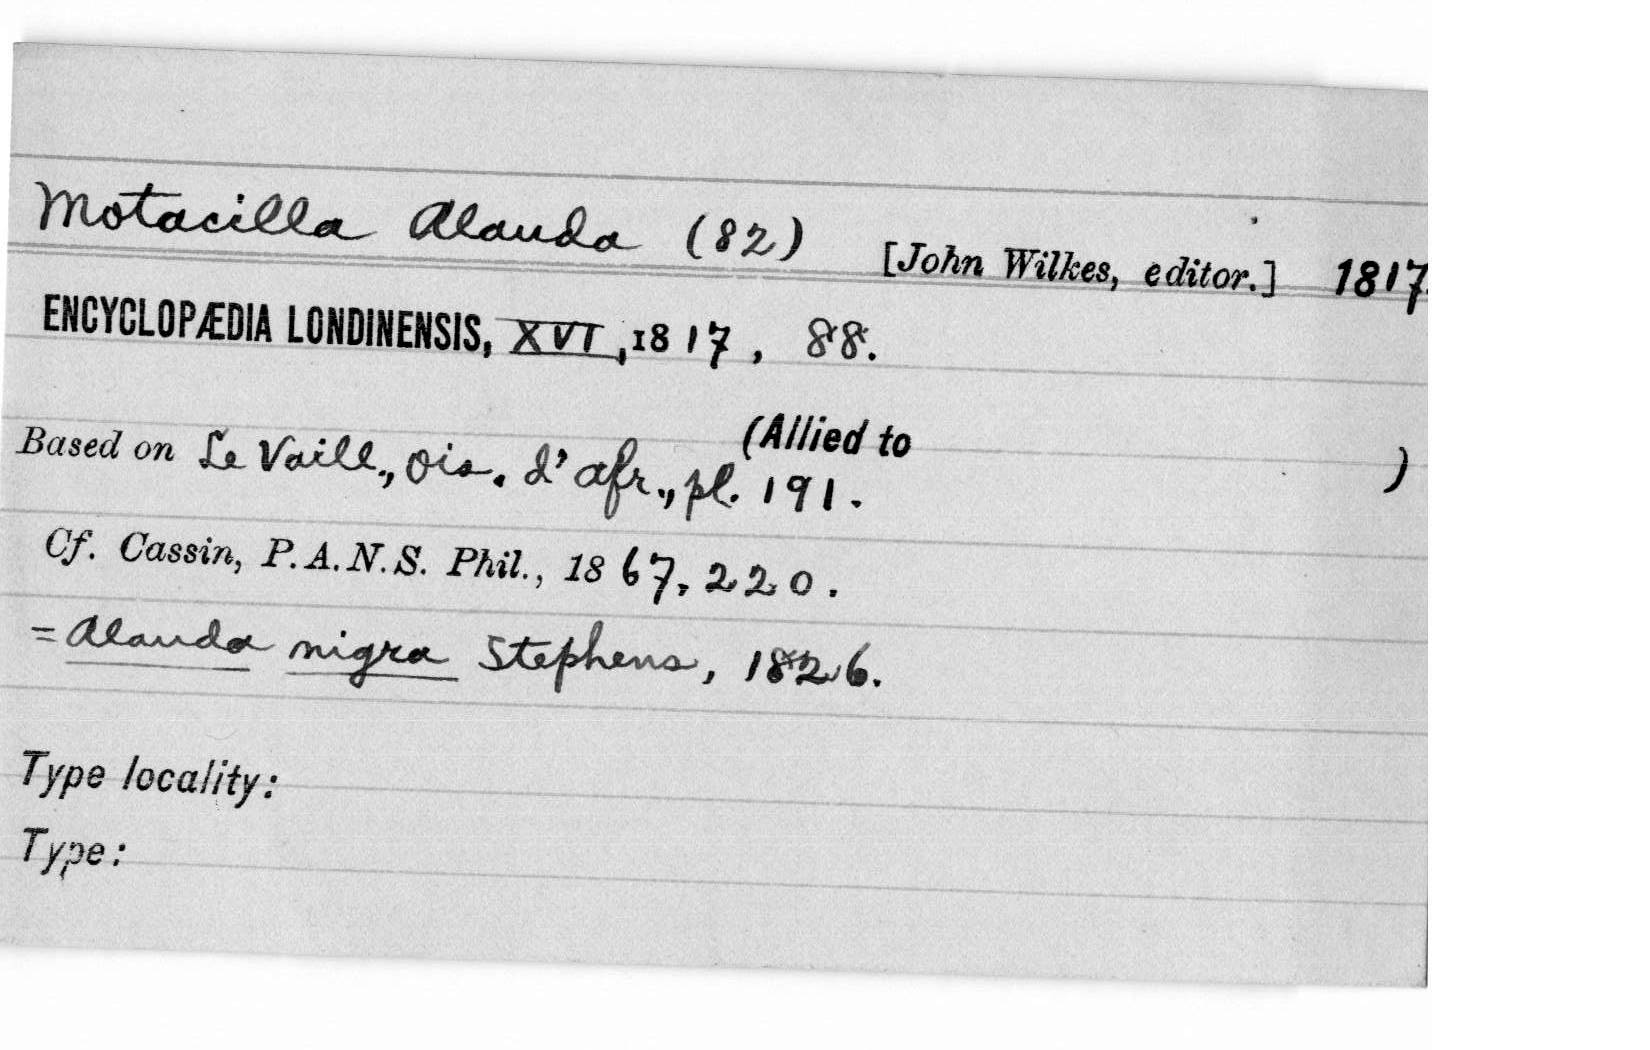 Motacilla Alauda (82) [John Wilkes, editor.] 1817.
ENCYCLOPÆDIA LONDINENSIS, XVI, 1817, 88.
(Allied to )
Based on Le Vaill., Ois. d'Afr., pl. 191.
Cf. Cassin, P.A.N.S. Phil., 1867, 220.
= Alauda nigra Stephens, 1826.
Type locality:
Type: